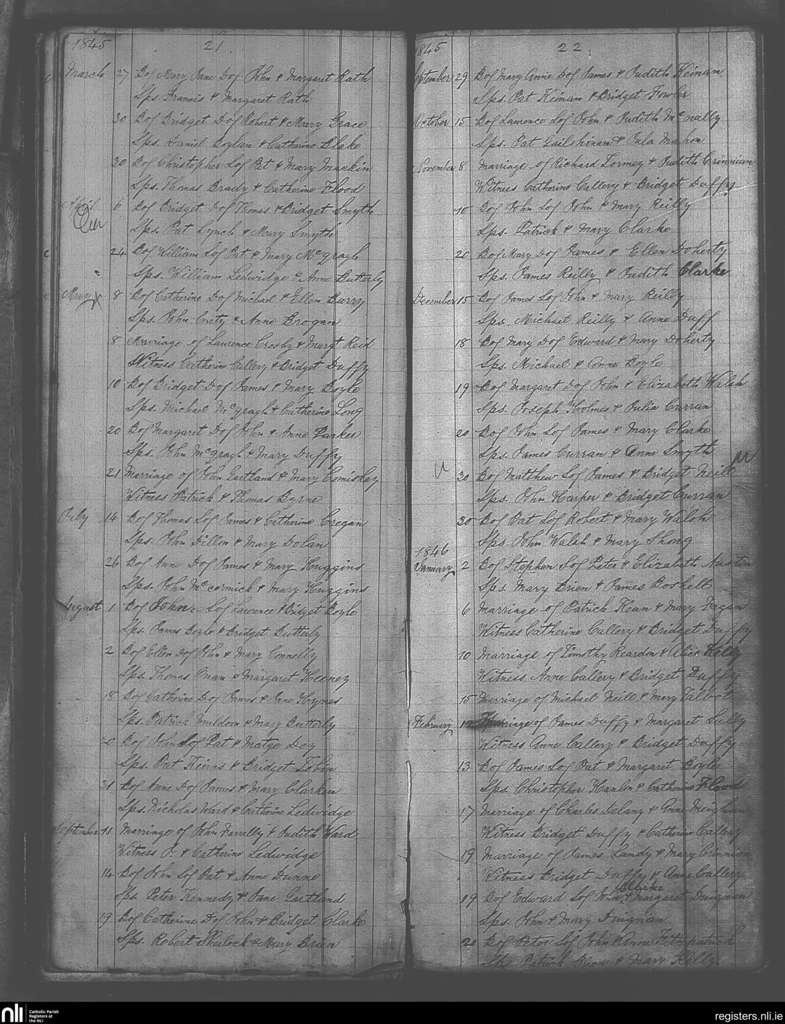 1845 21
March 27 B of Mary Jane D of John & Margaret Rath
Sps. Francis & Margaret Rath
30 B of Bridget D of Robert & Mary Grace
Sps. Daniel Boylan & Catherine Blake
30 B of Christopher S of Pat & Mary
Sps. Thomas Brady & Catherine Flood
April 6 B of Bridget D of Thomas & Bridget Smyth
Sps. Pat Lynch & Mary Smyth
24 B of William S of Pat & Mary McGragh
Sps. William Ledwidge & Anne Butterly
May 8 B of Catherine D of Michael & Ellen Barry
Sps. John & Anne Brogan
8 Marriage of Laurence Crosby & Margt Reid
Witness Catherine Callery & Bridget Duffy
10 B of Bridget D of James & Mary Boyle
Sps. Michael McGragh & Catherine Long
20 B of Margaret D of John & Anne
Sps. John McGragh & Mary Duffy
21 Marriage of John Gartland & Mary Comiskey
Witness Patrick & Thomas Byrne
July 14 B of Thomas S of James & Catherine Crogan
Sps. John Dillon & Mary Dolan
26 B of Ann D of James & Mary Huggins
Sps. John McCormick & Mary Huggins
August 1 B of John S of Laurence & Bridget Boyle
Sps. James Boyle & Bridget Butterly
2 B of Ellen D of John & Mary Connelly
Sps. Thomas & Margaret Heeney
18 B of Catherine D of James & Anne Hynes
Sps. Patrick & Mary Butterly
B of John S of Pat & Dey
Sps. Pat & Bridget Tobin
31 B of Anne D of James & Mary Clarken
Sps. Nicholas Ward & Catherine Ledwidge
September 11 Marriage of John & Judith Ward
Witness P. & Catherine Ledwidge
14 B of John S of Pat & Anne Dunne
Sps. Peter Kennedy & Jane Gartland
19 B of Catherine D of John & Bridget Clarke
Sps. Robert Sherlock & Mary Brien
1845 22
September 29 B of Mary Anne D of James & Judith Keinan
Sps. Pat Keinan & Bridget Fowler
October 15 B of Laurence S of John & Judith McNally
Sps. Pat & Mahon
November 8 Marriage of Richard Tormey & Judith
Witness Catherine Callery & Bridget Duffy
10 B of John S of John & Mary Reilly
Sps. Patrick & Mary Clarke
20 B of Mary D of James & Ellen Doherty
Sps. James Reilly & Judith Clarke
December 15 B of James S of John & Mary Reilly
Sps. Michael Reilly & Anne Duff
18 B of Mary D of Edward & Mary Doherty
Sps. Michael & Anne Boyle
19 B of Margaret D of John & Elizabeth Walsh
Sps. Joseph Holmes & Julia Curran
20 B of John S of James & Mary Clarke
Sps. James Curran & Anne Smyth
30 B of Matthew S of James & Bridget Neill
Sps. John Harper & Bridget Curran
30 B of Pat S of Robert & Mary Walsh
Sps. John Walsh & Mary
1846
January 2 B of Stephen S of Peter & Elizabeth Austin
Sps. Mary Brien & James
6 Marriage of Patrick Kean & Mary Fagan
Witness Catherine Callery & Bridget Duffy
10 Marriage of Timothy Reardon & Alice Kelly
Witness Anne Callery & Bridget Duffy
15 Marriage of Michael Neill & Mary Talbot
February 12 Marriage of James Duffy & Margaret
Witness Anne Callery & Bridget Duffy
13 B of James S of Pat & Margaret Boyle
Sps. Christopher Hanlon & Catherine Flood
17 Marriage of Charles Delany & Anne
Witness Bridget Duffy & Catherine Callery
19 Marriage of James Landy & Mary
Witness Bridget Duffy & Anne Callery
Clarke
19 B of Edward S of & Margaret Duignan
Sps. John & Mary Duignan
20 B of Peter S of John & Anne Fitzpatrick
Sps. Patrick & Mary Kelly
nli Catholic Parish
Registers at
the NLI
registers.nli.ie